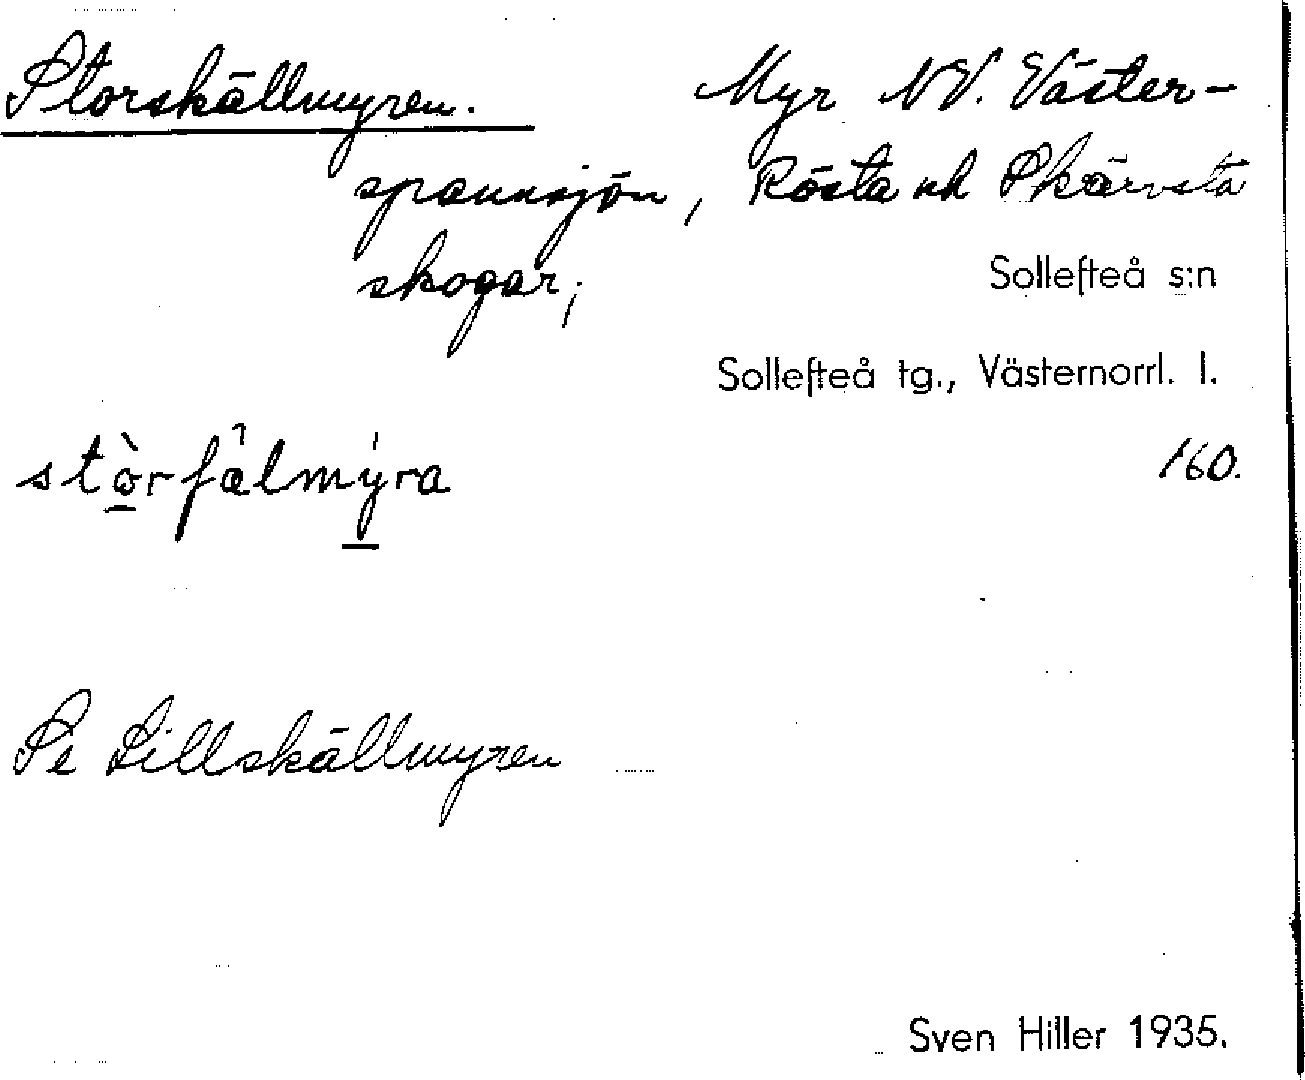 Storskällmyren. Myr NV. Väster-
spannsjön, Rösta och Skärvsta
skogar;
Sollefteå s:n
Sollefteå tg., Västernorrl. l.
160.
stò̱rʃälmy̱ra
Se Lillskällmyren
Sven Hiller 1935.